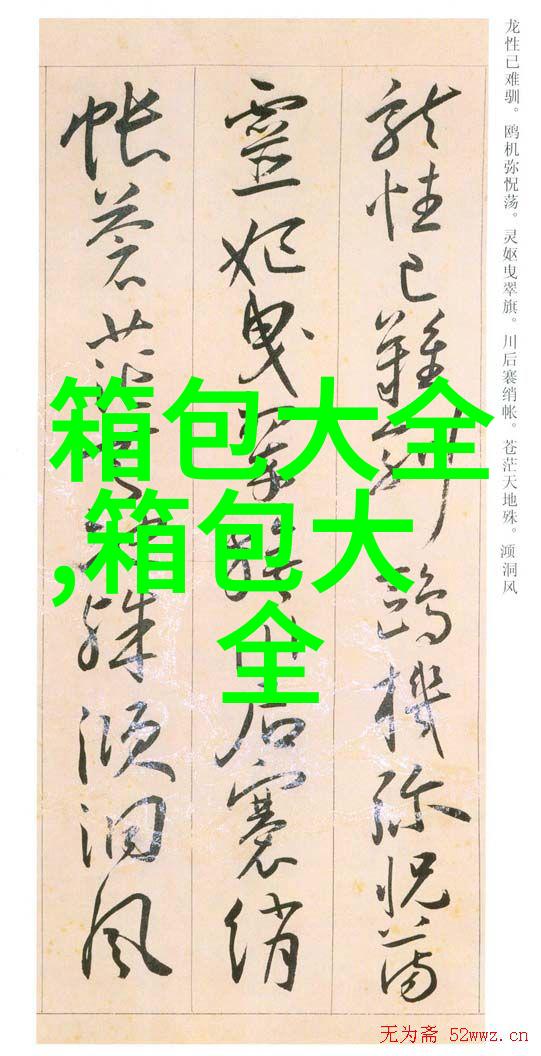 龙性已难驯。鸥机弥怳荡。灵妪曳翠旗。川后褰绡帐。苍茫天地殊。澒洞风
龍性已難馴鷗機弥怳蕩
靈嫗曳翠旗川后褰綃
帳蒼茫天地殊澒洞風
箱包大全
,箱包大
全
无为斋 52wwz.cn